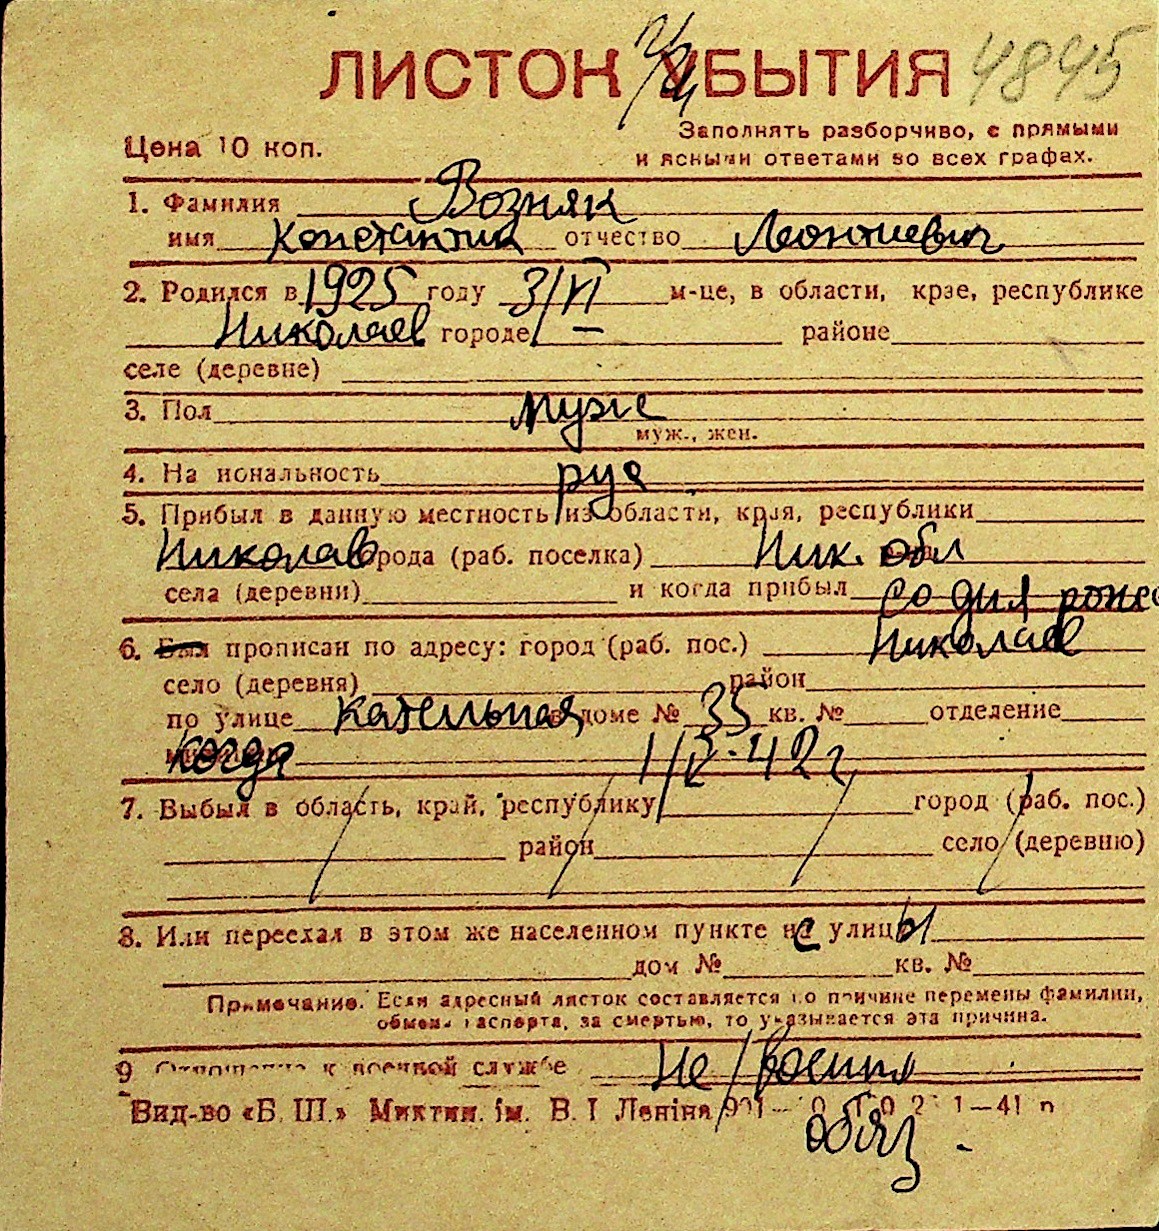 ЛИСТОК УБЫТИЯ 4845
Цена 10 коп.
Заполнять разборчиво, с прямыми
и ясными ответами во всех графах.
1. Фамилия Возняк
имя Константин отчество Леонтиевич
2. Родился в 1925 году 3/VI м-це, в области, крае, республике
Николаев городе — районе
селе (деревне)
3. Пол муж
муж., жен.
4. На иональность рус
5. Прибыл в данную местность из области, края, республики
Николаев города (раб. поселка) Ник. обл
села (деревни) и когда прибыл со дня рожд
6. Был прописан по адресу: город (раб. пос.) Николаев
село (деревня) район
по улице в доме № 35 кв. № отделение
когда 42 г
7. Выбыл в область, край, республику город (раб. пос.)
район село (деревню)
8. Или переехал в этом же населенном пункте с улицы
дом № кв. №
Примечание. Если адресный листок составляется по причине перемены фамилии,
обмена паспорта, за смертью, то указывается эта причина.
9 Отношение к военной службе не/военно
Вид-во «Б. Ш.» Миктип. ім. В. І Леніна
обяз.